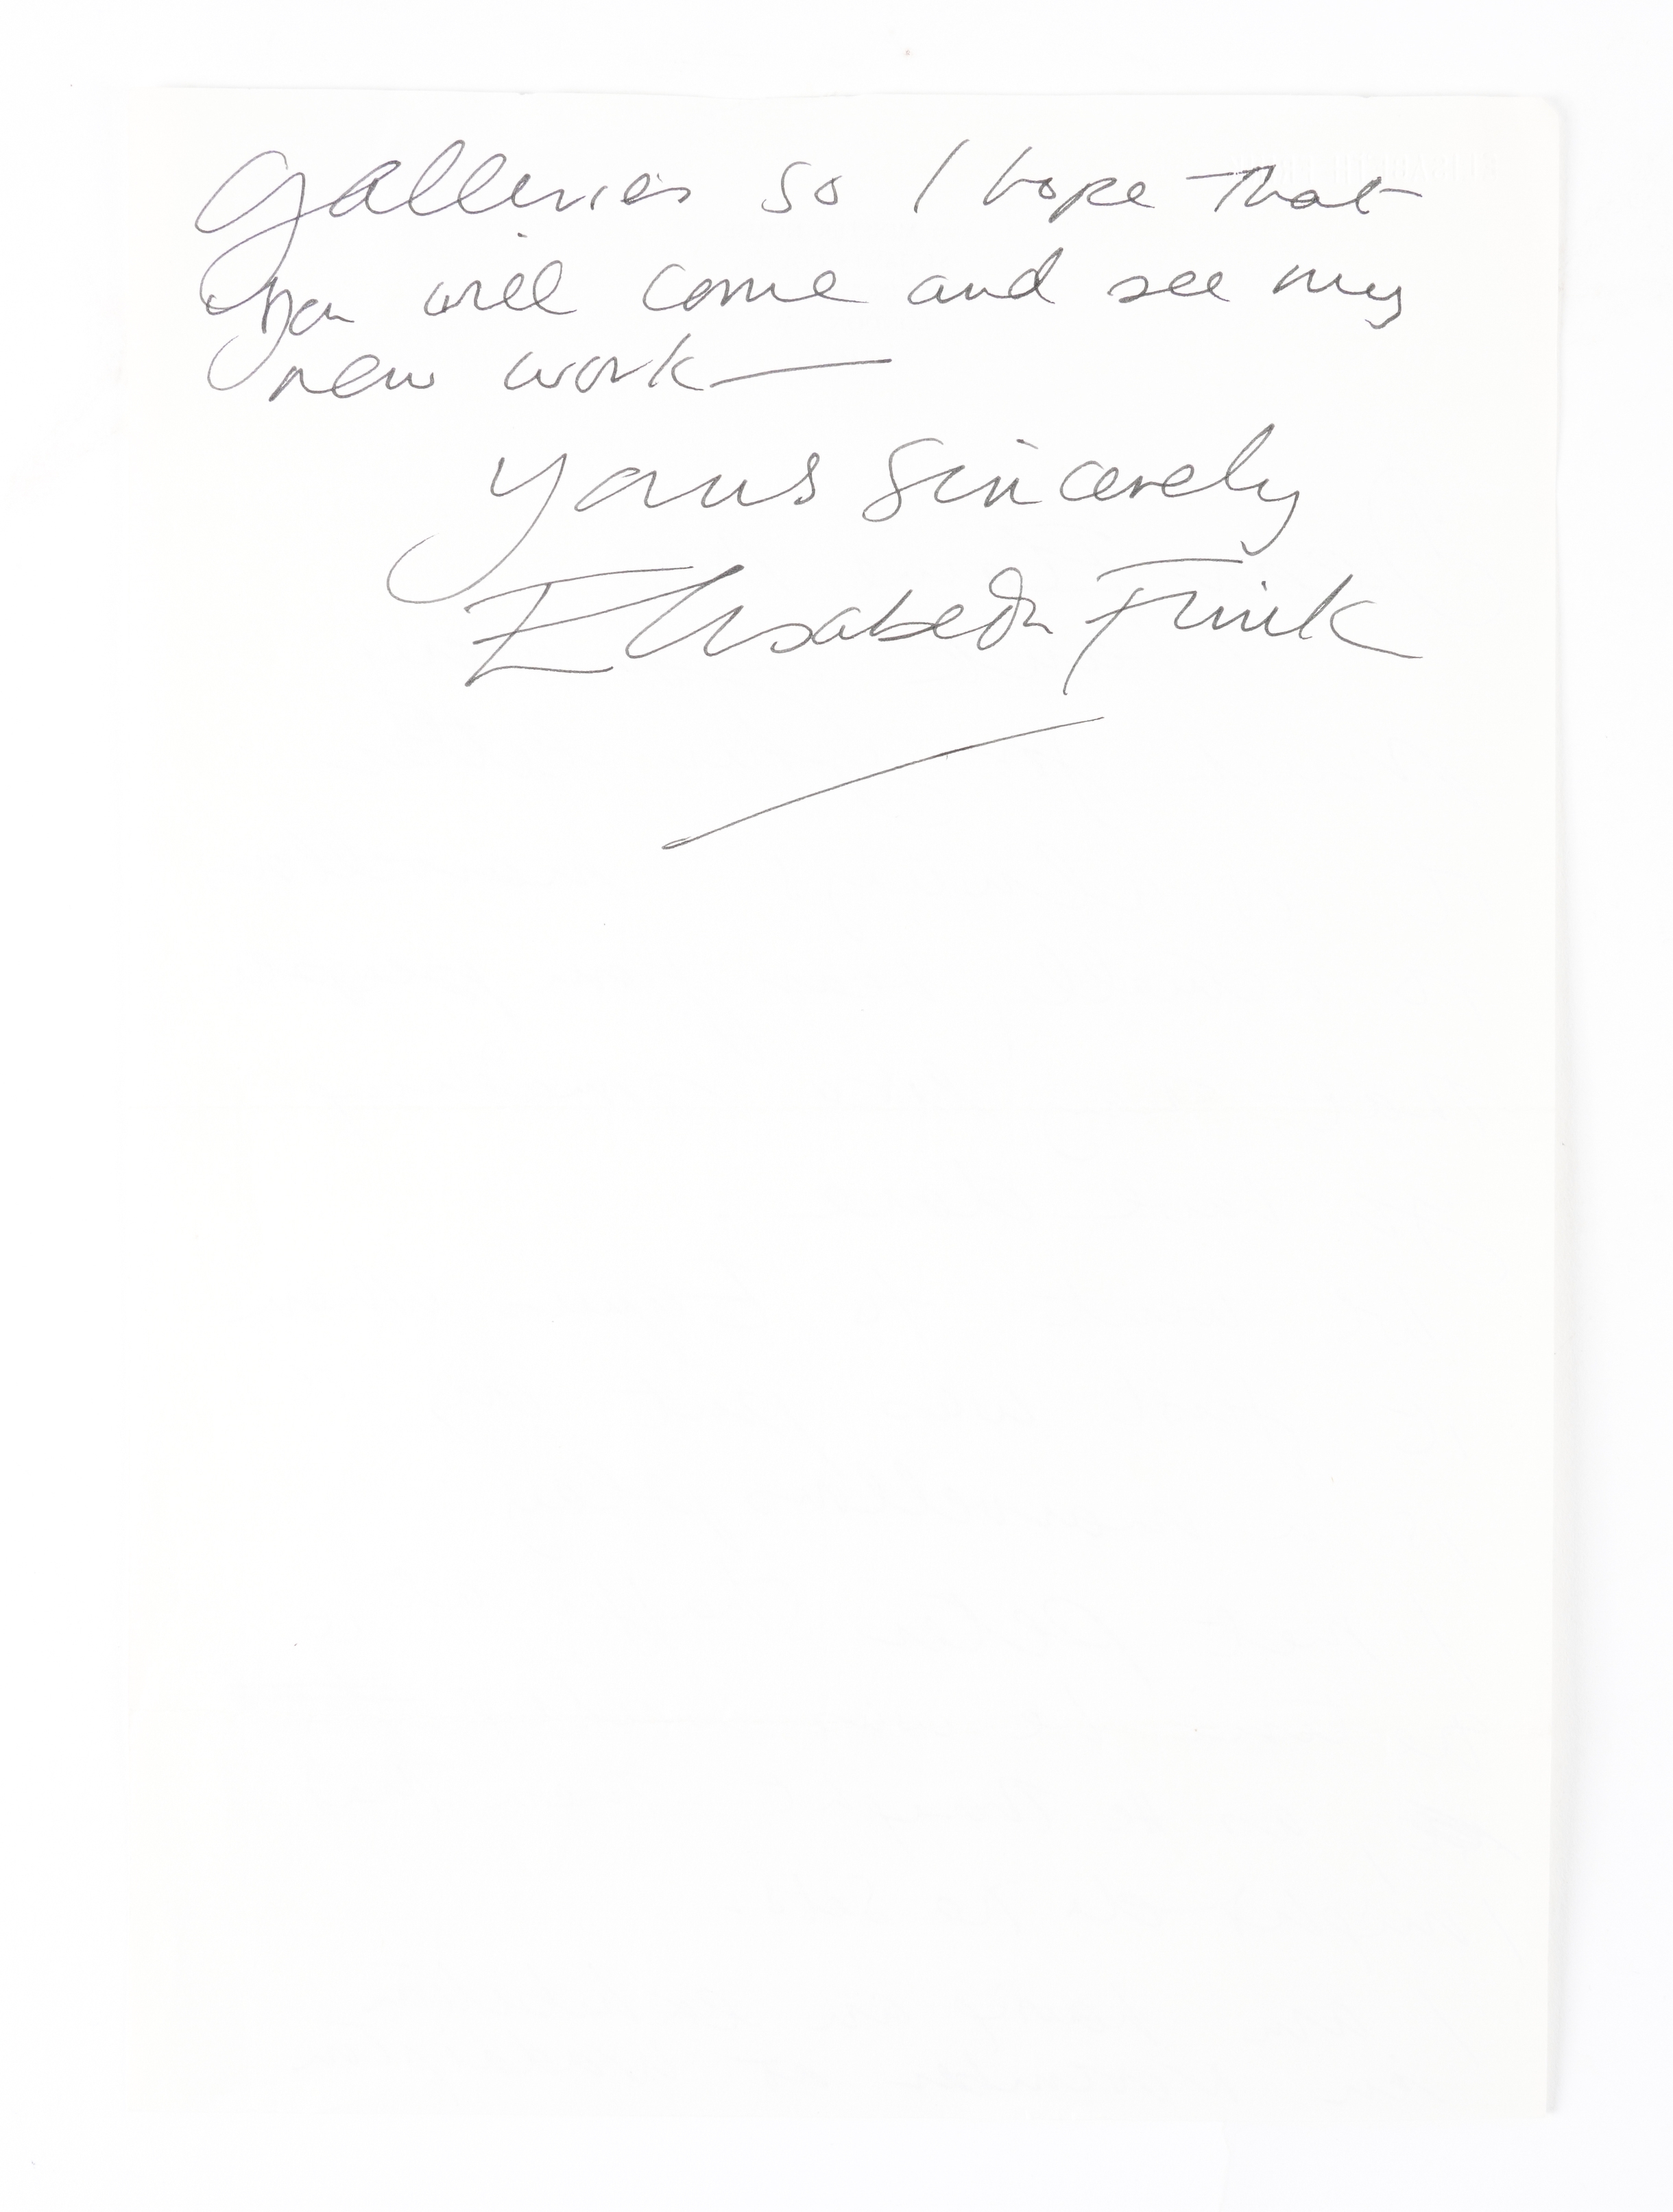 Galleries so I hope that
you will come and see my
new work —
Yours sincerely
Elisabeth Frink